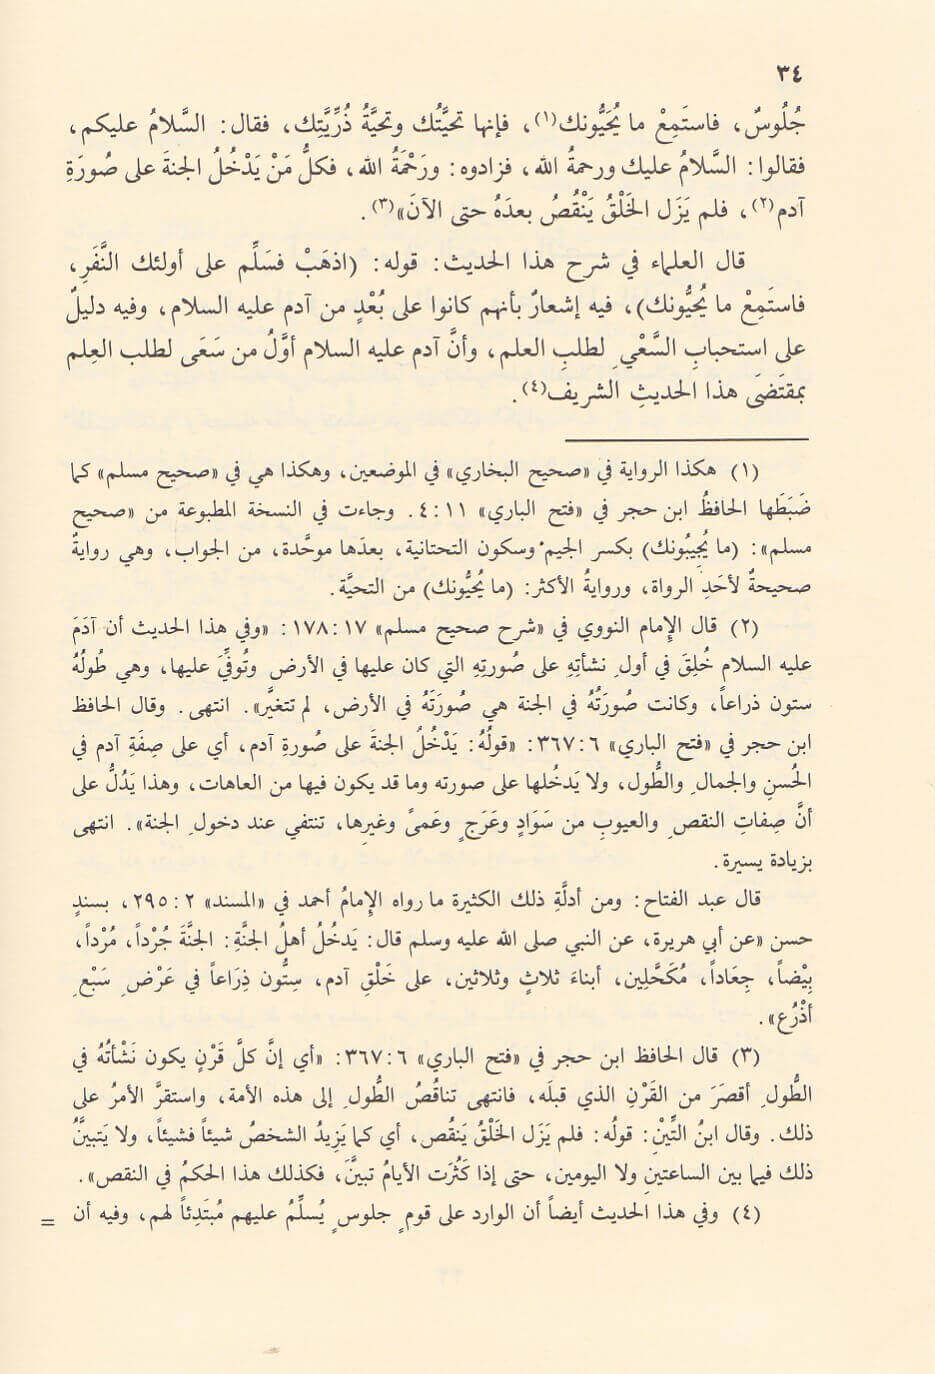 ٣٤
جُلُوسٌ، فاستَمِعْ ما يُحَيُّونك(١)، فإنها تحيَّتُك وتحيَّةُ ذُرِّيَّتِك، فقال: السَّلامُ عليكم،
فقالوا: السَّلامُ عليك ورحمةُ الله، فزادوه: ورَحْمَةُ الله، فكلُّ مَنْ يَدْخُلُ الجنة على صُورَةِ
آدم(٢)، فلم يَزَل الخَلْقُ يَنْقُصُ بعدَهُ حتى الآنَ»(٣).
قال العلماء في شرح هذا الحديث: قوله: (اذهَبْ فسَلِّم على أولئك النَّفَرِ،
فاستَمِعْ ما يُحيُّونك)، فيه إشعارٌ بأنهم كانوا على بُعْدٍ من آدم عليه السلام، وفيه دليلٌ
على استحبابِ السَّعْيِ لطلبِ العلم، وأنَّ آدم عليه السلام أوَّلُ من سَعَى لطلب العِلم
بمقتَضَى هذا الحديثِ الشريف(٤).
(١) هكذا الرواية في «صحيح البخاري» في الموضعين، وهكذا هي في «صحيح مسلم» كما
ضَبَطَها الحافظُ ابن حجر في «فتح الباري» ١١:٤. وجاءت في النسخة المطبوعة من «صحيح
مسلم»: (ما يُجِيبُونك) بكسر الجيم وسكون التحتانية، بعدَها موحَّدة، من الجواب، وهي روايةٌ
صحيحةٌ لأحَدِ الرواة، وروايةُ الأكثر: (ما يُحيُّونك) من التحيَّة.
(٢) قال الإمام النووي في «شرح صحيح مسلم» ١٧:١٧٨: «وفي هذا الحديث أن آدَمَ
عليه السلام خُلِقَ في أولِ نشأتِهِ على صُورتِهِ التي كان عليها في الأرض وتُوفِّيَ عليها، وهي طُولُهُ
ستون ذراعاً، وكانت صُورَتُهُ في الجنة هي صُورَتَهُ في الأرض، لم تتغيَّر». انتهى. وقال الحافظ
ابن حجر في «فتح الباري» ٦:٣٦٧: «قولُهُ: يَدْخُلُ الجنةَ على صُورةِ آدم، أي على صِفَةِ آدم في
الحُسنِ والجمالِ والطُّول، ولا يَدخُلها على صورته وما قد يكون فيها من العاهات، وهذا يَدُلُّ على
أنَّ صِفاتِ النقصِ والعيوبِ من سَوَادٍ وعَرَجٍ وعَمىً وغيرِها، تنتفي عند دخولِ الجنة». انتهى
بزيادة يسيرة.
قال عبد الفتاح: ومن أدلَّةِ ذلك الكثيرة ما رواه الإمامُ أحمد في «المسند» ٢:٢٩٥، بسندٍ
حسن «عن أبي هريرة، عن النبي صلى الله عليه وسلم قال: يَدخُلُ أهلُ الجنَّةِ: الجنَّةَ جُرْداً، مُرْداً،
بِيْضاً، جِعَاداً، مُكَحَّلِين، أبناءَ ثلاثٍ وثلاثين، على خَلْقِ آدم، سِتُّون ذِرَاعاً في عَرْضِ سَبْعِ
أذْرُع».
(٣) قال الحافظ ابن حجر في «فتح الباري» ٦:٣٦٧: «أي إنَّ كلَّ قَرْنٍ يكون نَشْأتُهُ في
الطُّولِ أقصَرَ من القَرْنِ الذي قبلَه، فانتهى تناقُصُ الطُّولِ إلى هذه الأمة، واستقرَّ الأمرُ على
ذلك. وقال ابنُ التِّيْنِ: قولُه: فلم يَزَل الخَلْقُ يَنقُص، أي كما يَزِيدُ الشخصُ شيئاً فشيئاً، ولا يَتبيَّنُ
ذلك فيما بين الساعتينِ ولا اليومين، حتى إذا كَثُرَت الأيامُ تبيَّنَ، فكذلك هذا الحكمُ في النقص».
(٤) وفي هذا الحديث أيضاً أن الوارد على قومٍ جلوسٍ يُسلِّمُ عليهم مُبتَدِئاً لهم، وفيه أن =